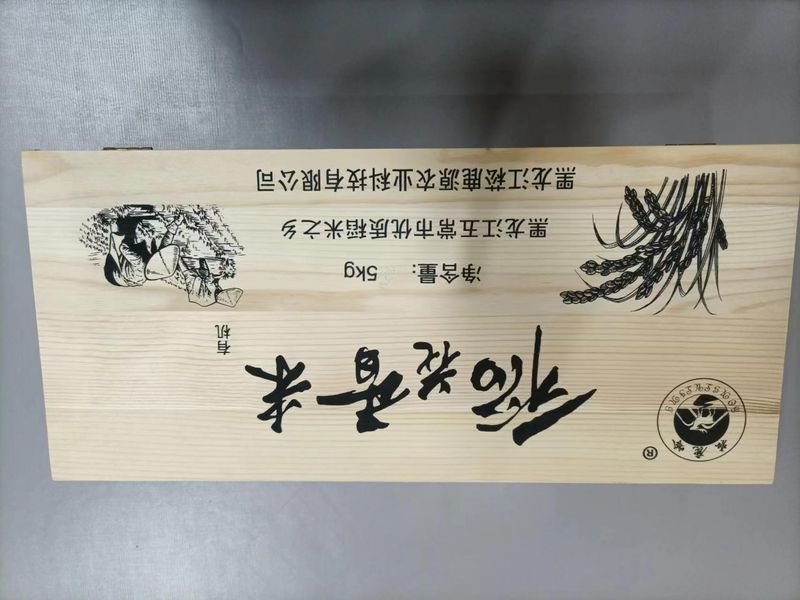 ®
稻花香米
有机
净含量: 5kg
黑龙江五常市优质稻米之乡
黑龙江菘鹿源农业科技有限公司